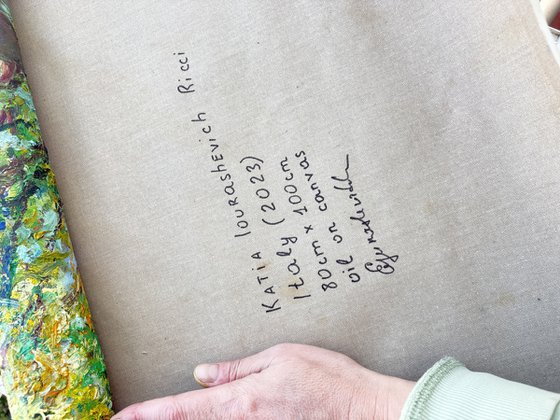 KATIA IOURASHEVICH Ricci
Italy (2023)
80cm x 100cm
oil on canvas